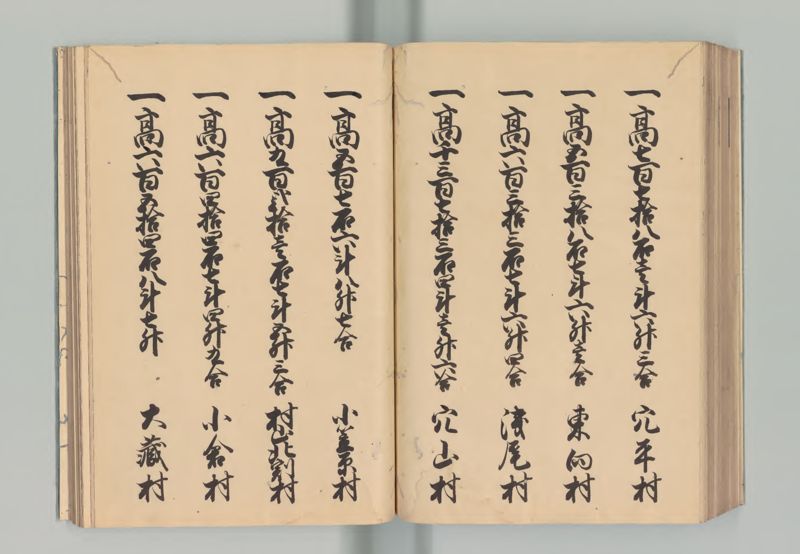 一高七百七拾八石壱斗六升三合 穴平村
一高五百三拾八石七斗六升壱合 東向村
一高六百三拾三石七斗六升四合 浅尾村
一高千三百七拾三石四斗壱升六合 穴山村
一高五百七石六斗八升七合 小笠原村
一高九百弐拾壱石七斗五升三合 村山北割村
一高六百四拾四石七斗四升九合 小倉村
一高六百五拾四石八斗七升 大蔵村